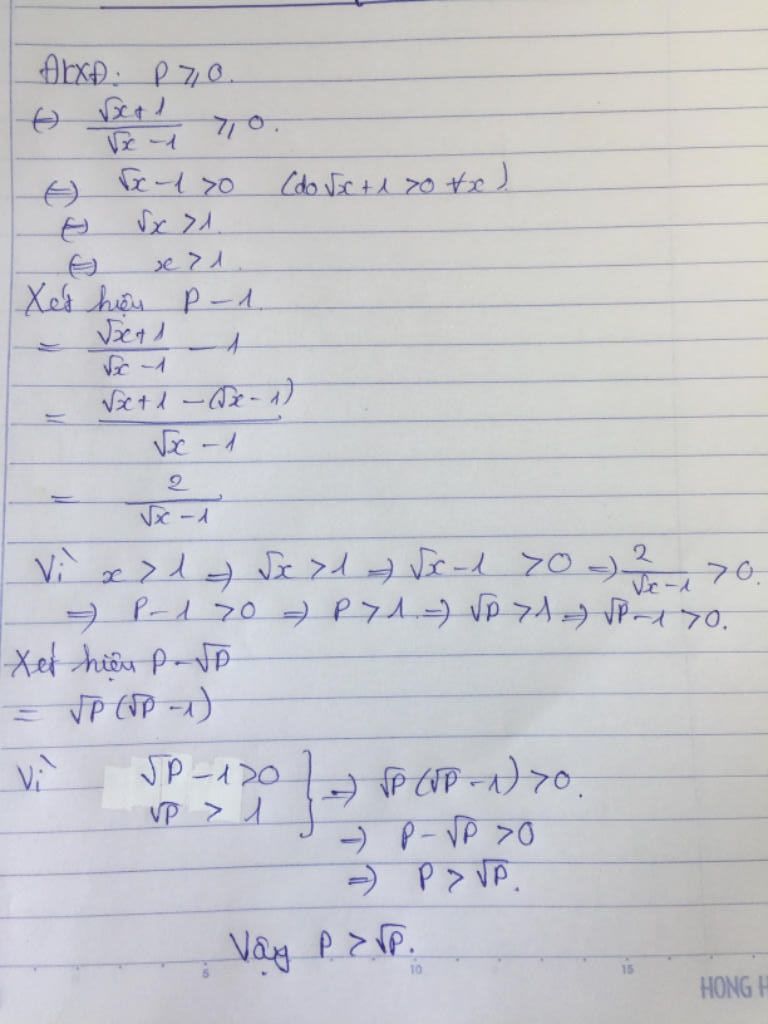 ĐKXĐ: P ⩾ 0.
⇔ (√x+1)/(√x-1) ⩾ 0.
⇔ √x-1 > 0 (do √x+1 > 0 ∀x)
⇔ √x > 1.
⇔ x > 1.
Xét hiệu P - 1.
= (√x+1)/(√x-1) - 1
= (√x+1-(√x-1))/(√x-1)
= 2/(√x-1)
Vì x > 1 ⇒ √x > 1 ⇒ √x-1 > 0 ⇒ 2/(√x-1) > 0.
⇒ P-1 > 0 ⇒ P > 1 ⇒ √P > 1 ⇒ √P-1 > 0.
Xét hiệu P-√P
= √P(√P-1)
Vì √P-1 > 0 } ⇒ √P(√P-1) > 0.
√P > 1
⇒ P-√P > 0
⇒ P > √P.
Vậy P > √P.
5 10 15
HONG H